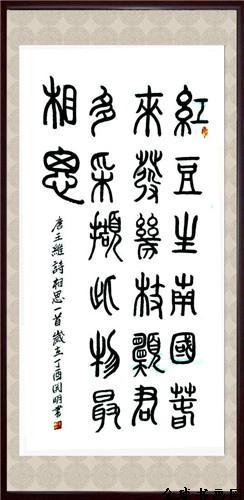 紅豆生南國春
來發幾枝願君
多采擷此物最
相思
唐王維詩相思一首歲在丁酉閃明書